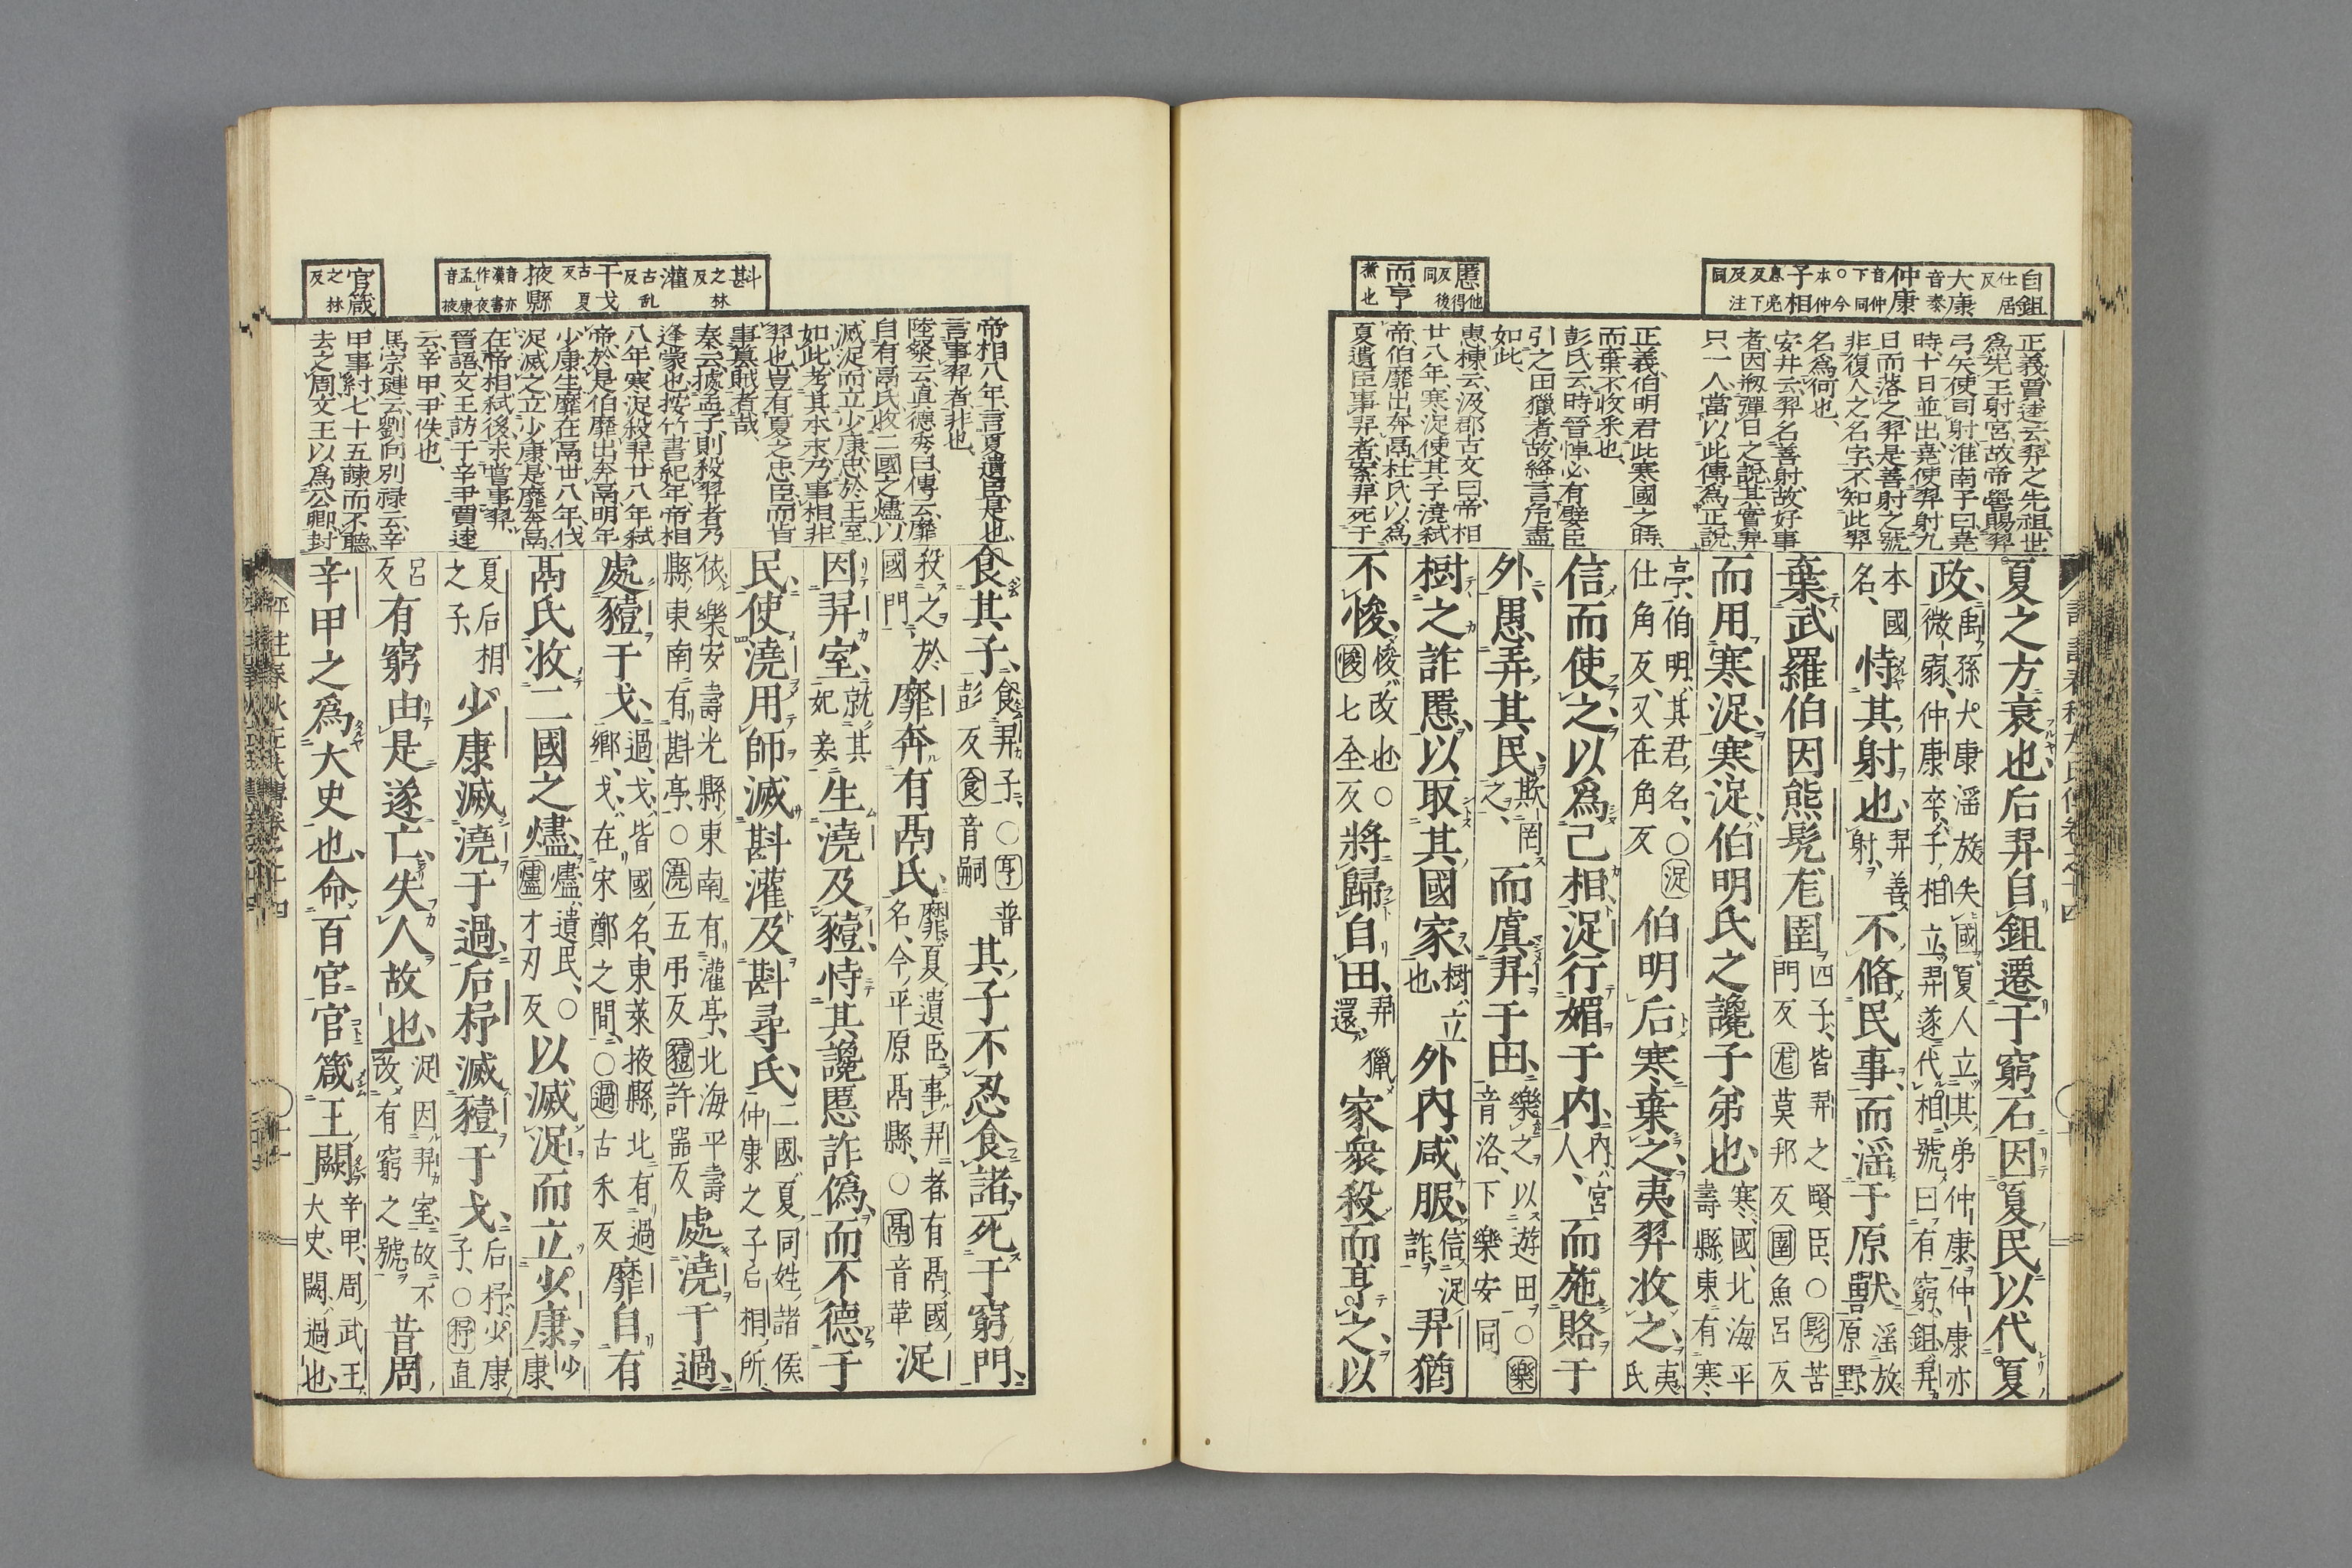 自鉏 仕居反
大康 音泰
仲康 音仲下同○今本仲
子相 息亮反下及注同
慝 他得反後同
而亨 煮也
正義賈逵云羿之先祖世
爲先王射官故帝嚳賜羿
弓矢使司射淮南子曰堯
時十日並出堯使羿射九
日而落之羿是善射之號
非復人之名字不知此羿
名爲何也
安井云羿名善射故好事
者因剏彈日之說其實羿
只一人當以此傳爲正說
正義伯明君此寒國之時
而棄不收釆也
彭氏云時晉悼必有嬖臣
引之田獵者故絳言危盡
如此
惠棟云汲郡古文曰帝相
廿八年寒浞使其子澆弑
帝伯靡出奔鬲杜氏以爲
夏遺臣事羿者案羿死于
夏之方衰也后羿自鉏遷于窮石因夏民以代夏
政禹孫大康淫放失國夏人立其弟仲康仲康亦微弱仲康卒子相立羿遂代相號曰有窮鉏羿
本國名恃其射也羿善射不脩民事而淫于原獸淫放原野
棄武羅伯因熊髡尨圉四子皆羿之賢臣○髡苦門反尨莫邦反圉魚呂反
而用寒浞寒浞伯明氏之讒子弟也寒國北海平壽縣東有寒
亭伯明其君名○浞仕角反又在角反伯明后寒棄之夷羿收之夷氏
信而使之以爲己相浞行媚于内内宮人而施賂于
外愚弄其民欺罔之而虞羿于田樂之以遊田○樂音洛下樂安同
樹之詐慝以取其國家樹立也外内咸服信浞詐羿猶
不悛悛改也○悛七全反將歸自田羿獵還家衆殺而亨之以
斟 之林反
灌 古乱反
干戈 古夏反
掖縣 音亦漢書作夜孟康音掖
官箴 之林反
帝相八年言夏遺臣是也
言事羿者非也
陸粲云眞德秀曰傳云靡
自有鬲氏收二國之燼以
滅浞而立少康忠於王室
如此考其本末乃事相非
羿也豈有夏之忠臣而肯
事簒賊者哉
秦云據孟子則殺羿者乃
逢蒙也按竹書紀年帝相
八年寒浞殺羿廿八年弑
帝於是伯靡出奔鬲明年
少康生靡在鬲廿八年伐
浞滅之立少康是靡奔鬲
在帝相弑後未嘗事羿
晉語文王訪于辛甲賈逵
云辛甲尹佚也
馬宗璉云劉向別祿云辛
甲事紂七十五諫而不聽
去之周文王以爲公卿封
食其子食羿子○亨普彭反食音嗣其子不忍食諸死于窮門
殺之於國門靡奔有鬲氏靡夏遺臣事羿者有鬲國名今平原鬲縣○鬲音革浞
因羿室就其妃妾生澆及豷恃其讒慝詐偽而不德于
民使澆用師滅斟灌及斟尋氏二國夏同姓諸侯仲康之子后相所
依樂安壽光縣東南有灌亭北海平壽縣東南有斟亭○澆五弔反豷許器反處澆于過
處豷于戈過戈皆國名東萊掖縣北有過鄉戈在宋鄭之間○過古禾反靡自有
鬲氏收二國之燼燼遺民○燼才刃反以滅浞而立少康少康
夏后相之子少康滅澆于過后杼滅豷于戈后杼少康子○杼直
呂反有窮由是遂亡失人故也浞因羿室故不改有窮之號昔周
辛甲之爲大史也命百官官箴王闕辛甲周武王大史闕過也